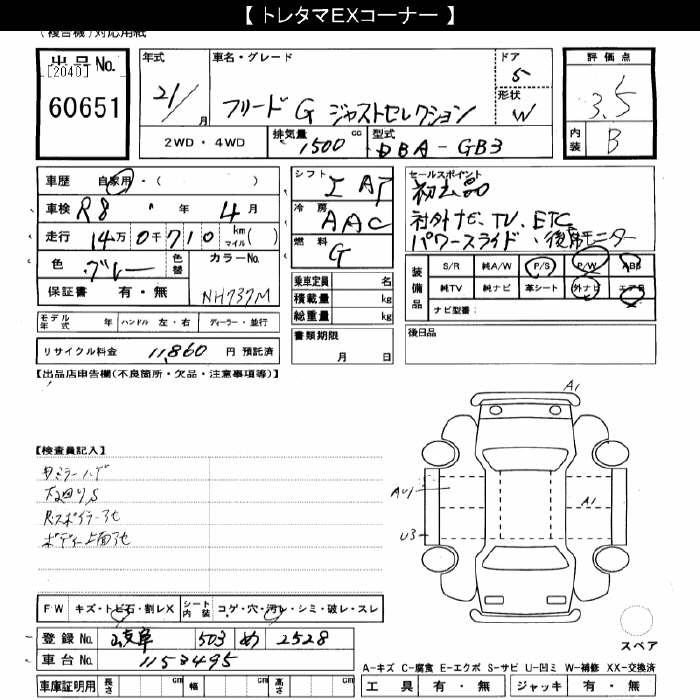 【 トレタマEXコーナー 】
(複合機)対応用紙
出品 No.
[2040]
60651
年式
21/ 月
車名・グレード
フリード G ジャストセレクション
ドア
5
形状
W
2WD・4WD
排気量
1500 cc
型式
DBA-GB3
評価点
3.5
内装
B
車歴 自家用・( )
車検 R8 年 4 月
走行 14万 0千 710 km マイル( )
色 グレー 色替
カラーNo.
NH737M
保証書 有・無
シフト
I AT
冷房
AAC
燃料
G
乗車定員 名
積載量 kg
総重量 kg
書類期限
月 日
セールスポイント
社外ナビ、TV、ETC
パワースライド、後席モニター
装備品
S/R 純A/W P/S P/W ABS
純TV 純ナビ 革シート 外ナビ エアB
ナビ型番:
後日品
モデル年式 年 ハンドル 左・右 ディーラー・並行
リサイクル料金 11,860 円 預託済
【出品店申告欄(不良箇所・欠品・注意事項等)】
【検査員記入】
ボディ上面ヤセ
A1
AU1
A1
U3
F・W キズ・トビ石・割レX
シート内装 コゲ・穴・汚レ・シミ・破レ・スレ
登録 No. 岐阜 503 め 2528
車台 No. 1153495
車庫証明用 長さ cm 幅 cm 高さ cm
スペア
A-キズ C-腐食 E-エクボ S-サビ U-凹ミ W-補修 XX-交換済
工具 有・無 ジャッキ 有・無